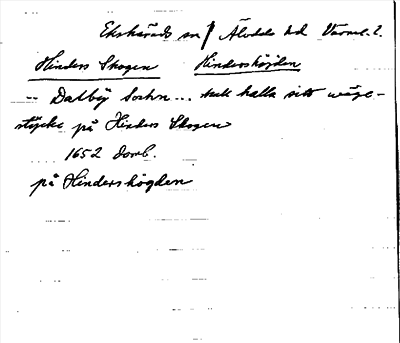 Ekshärads sn Älvdals hd Värml. l.
Hinders Skogen Hindershöjden
-- Dalby Sochn ... skall hålla sitt wäge-
stÿcke på Hinders Skogen
1652 Domb.
på Hindershögden